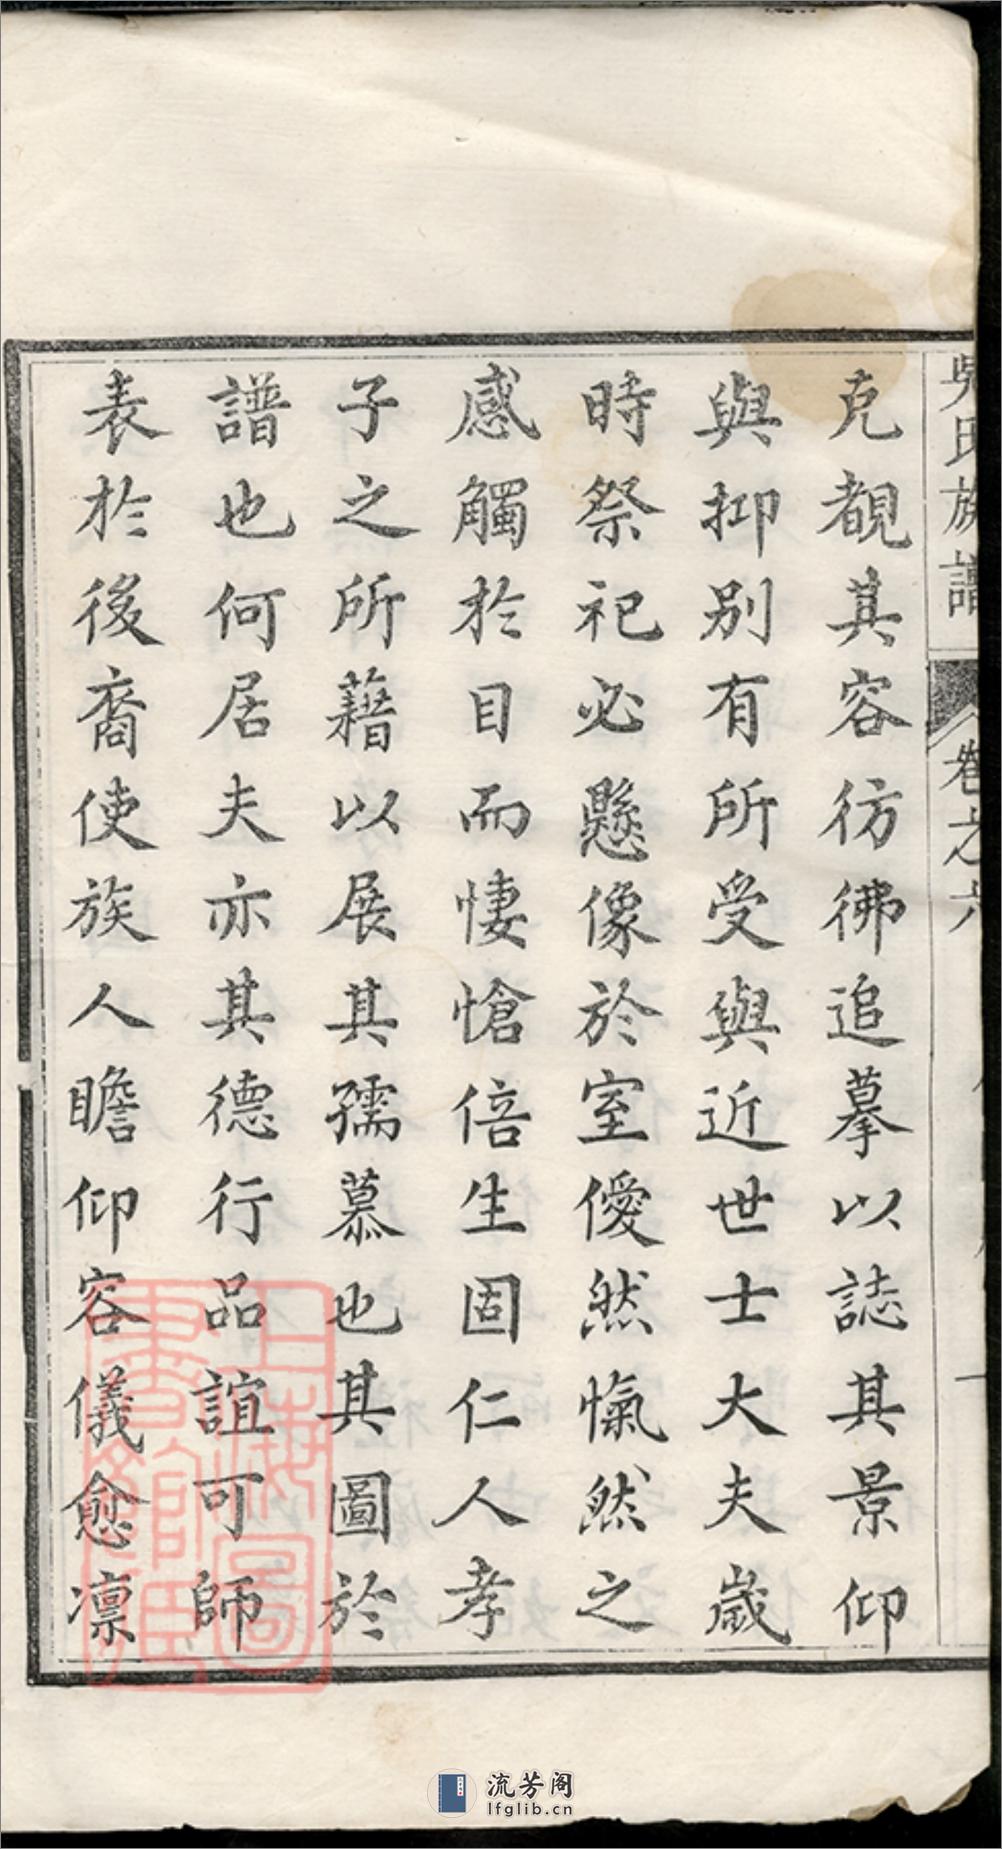 吳氏族譜 卷之六 一
克覩其容彷彿追摹以誌其景仰
與抑別有所受與與近世士大夫歲
時祭祀必懸像於室僾然愾然之
感觸於目而悽愴倍生固仁人孝
子之所藉以展其孺慕也其圖於
譜也何居夫亦其德行品誼可師
表於後裔使族人瞻仰容儀愈凛
上海圖書館藏
流芳阁
lfglib.cn